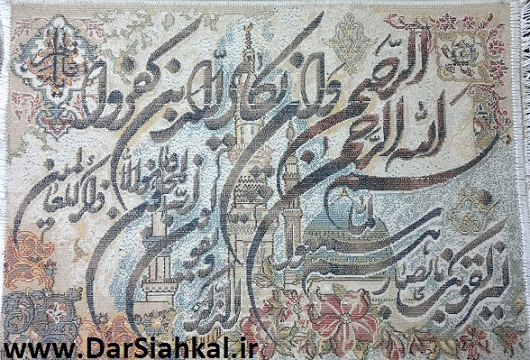 بسم الله الرحمن الرحیم
وان یکاد الذین کفروا
لیزلقونک بابصارهم
لما سمعوا الذکر
و یقولون انه لمجنون
وما هو الا ذکر للعالمین
www.DarSiahkal.ir